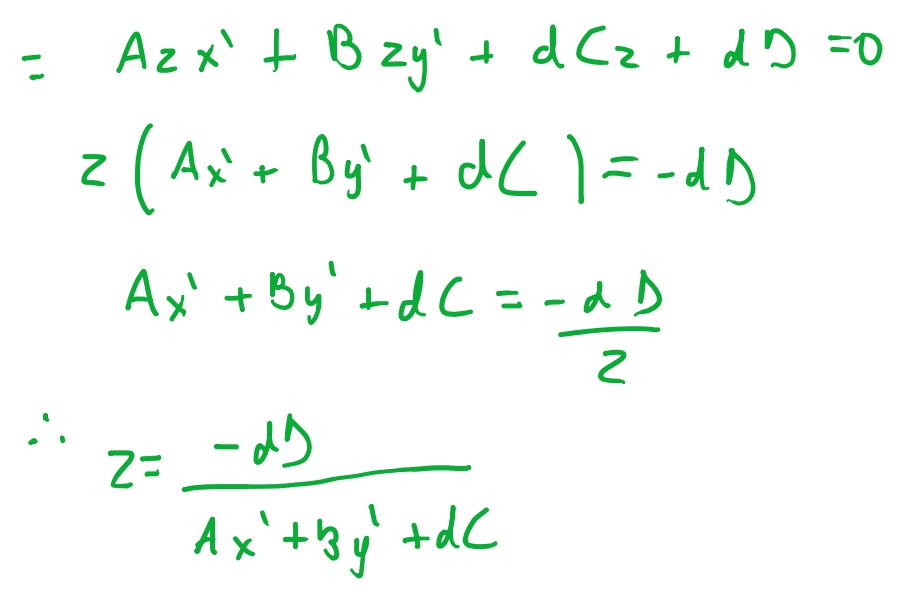 = Azx' + Bzy' + dCz + dD = 0
z(Ax' + By' + dC) = -dD
Ax' + By' + dC = -dD/z
∴ z = -dD/(Ax' + By' + dC)